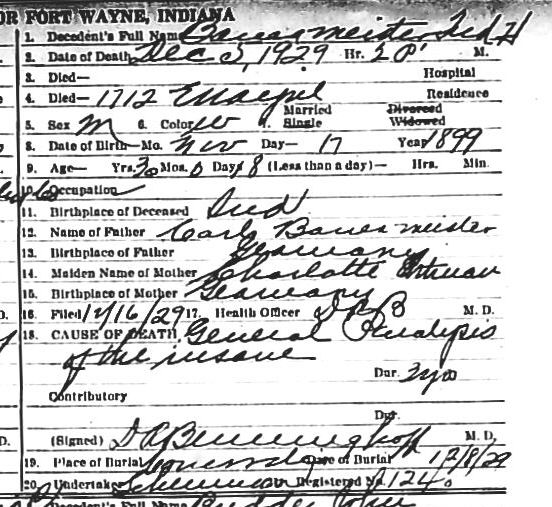 OR FORT WAYNE, INDIANA
1. Decedent's Full Name Bauermeister Fred H
2. Date of Death Dec 5, 1929 Hr. 2 P M.
3. Died— Hospital
4. Died— 1712 Residence
5. Sex M 6. Color W 7. Married Single Divorced Widowed
8. Date of Birth—Mo. Nov Day— 17 Year 1899
9. Age— Yrs. 30 Mos. 0 Days 18 (Less than a day)— Hrs. Min.
10. Occupation
11. Birthplace of Deceased Ind
12. Name of Father Carl Bauermeister
13. Birthplace of Father Germany
14. Maiden Name of Mother Charlotte
15. Birthplace of Mother Germany
16. Filed 12/16/29 17. Health Officer D R B M. D.
18. CAUSE OF DEATH, General Paralysis
of the insane
Dur. 3 yrs
Contributory
Dur.
D. (Signed) D R Benninghoff M. D.
19. Place of Burial Concordia Date of Burial 12/8/29
20. Undertaker Registered No. 1240
Decedent's Full Name John